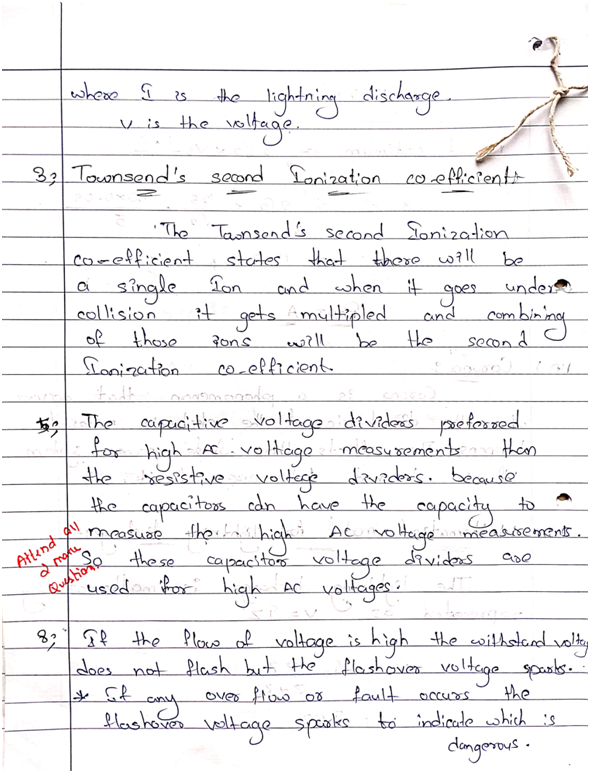 where I is the lightning discharge.
V is the voltage.
3; Townsend's second Ionization co-efficient:-
The Tawnsend's second Ionization
co-efficient states that there will be
a single Ion and when it goes under
collision it gets multipled and combining
of those ions will be the second
Ionization co-efficient.
5; The capacitive voltage dividers preferred
for high AC voltage measurements than
the resistive voltage dividers. because
the capacitors can have the capacity to
measure the high AC voltage measurements.
So these capacitor voltage dividers are
used for high AC voltages.
Attend all
2 mark
Question
8; If the flow of voltage is high the withstand voltag
does not flash but the flashover voltage sparks.
* If any over flow or fault occurs the
flashover voltage sparks to indicate which is
dangerous.